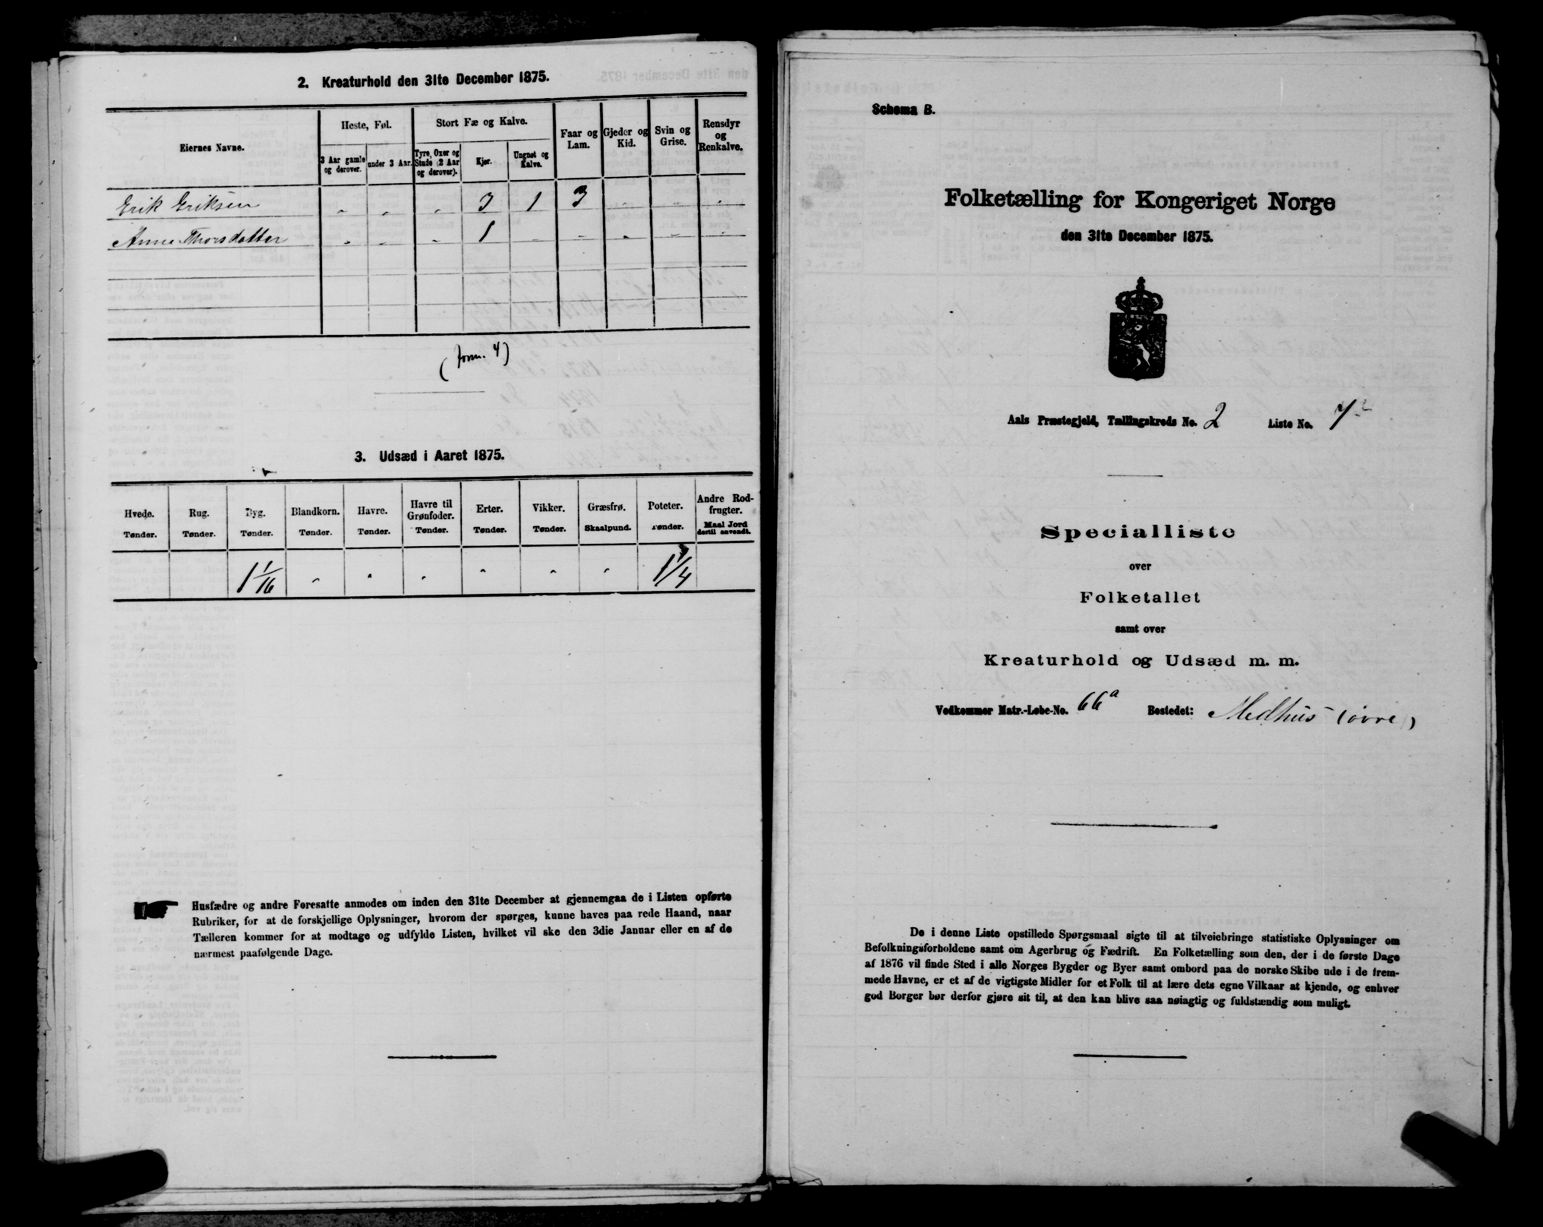 2. Kreaturhold den 31te December 1875.
Eiernes Navne.
Heste, Føl.
3 Aar gamle og derover.
under 3 Aar.
Stort Fæ og Kalve.
Tyre, Oxer og Stude (2 Aar og derover).
Kjør.
Ungnøt og Kalve.
Faar og Lam.
Gjeder og Kid.
Svin og Grise.
Rensdyr og Renkalve.
Erik Eriksen - - - 3 1 3 - - -
Anne Thorsdatter - - - 1 - - - - -
(form. 4)
3. Udsæd i Aaret 1875.
Hvede. Tønder.
Rug. Tønder.
Byg. Tønder.
Blandkorn. Tønder.
Havre. Tønder.
Havre til Grønfoder. Tønder.
Erter. Tønder.
Vikker. Tønder.
Græsfrø. Skaalpund.
Poteter. Tønder.
Andre Rodfrugter. Maal Jord dertil anvendt.
1 1/16 - - - - - -
Husfædre og andre Foresatte anmodes om inden den 31te December at gjennemgaa de i Listen opførte
Rubriker, for at de forskjellige Oplysninger, hvorom der spørges, kunne haves paa rede Haand, naar
Tælleren kommer for at modtage og udfylde Listen, hvilket vil ske den 3die Januar eller en af de
nærmest paafølgende Dage.
Schema B.
Folketælling for Kongeriget Norge
den 31te December 1875.
Aals Præstegjeld, Tællingskreds No. 2 Liste No.
Specialliste
over
Folketallet
samt over
Kreaturhold og Udsæd m. m.
Vedkommer Matr.-Løbe-No. 66a Bostedet: Medhus (øvre)
De i denne Liste opstillede Spørgsmaal sigte til at tilveiebringe statistiske Oplysninger om
Befolkningsforholdene samt om Agerbrug og Fædrift. En Folketælling som den, der i de første Dage
af 1876 vil finde Sted i alle Norges Bygder og Byer samt ombord paa de norske Skibe ude i de frem-
mede Havne, er et af de vigtigste Midler for et Folk til at lære dets egne Vilkaar at kjende, og enhver
god Borger bør derfor gjøre sit til, at den kan blive saa nøiagtig og fuldstændig som muligt.